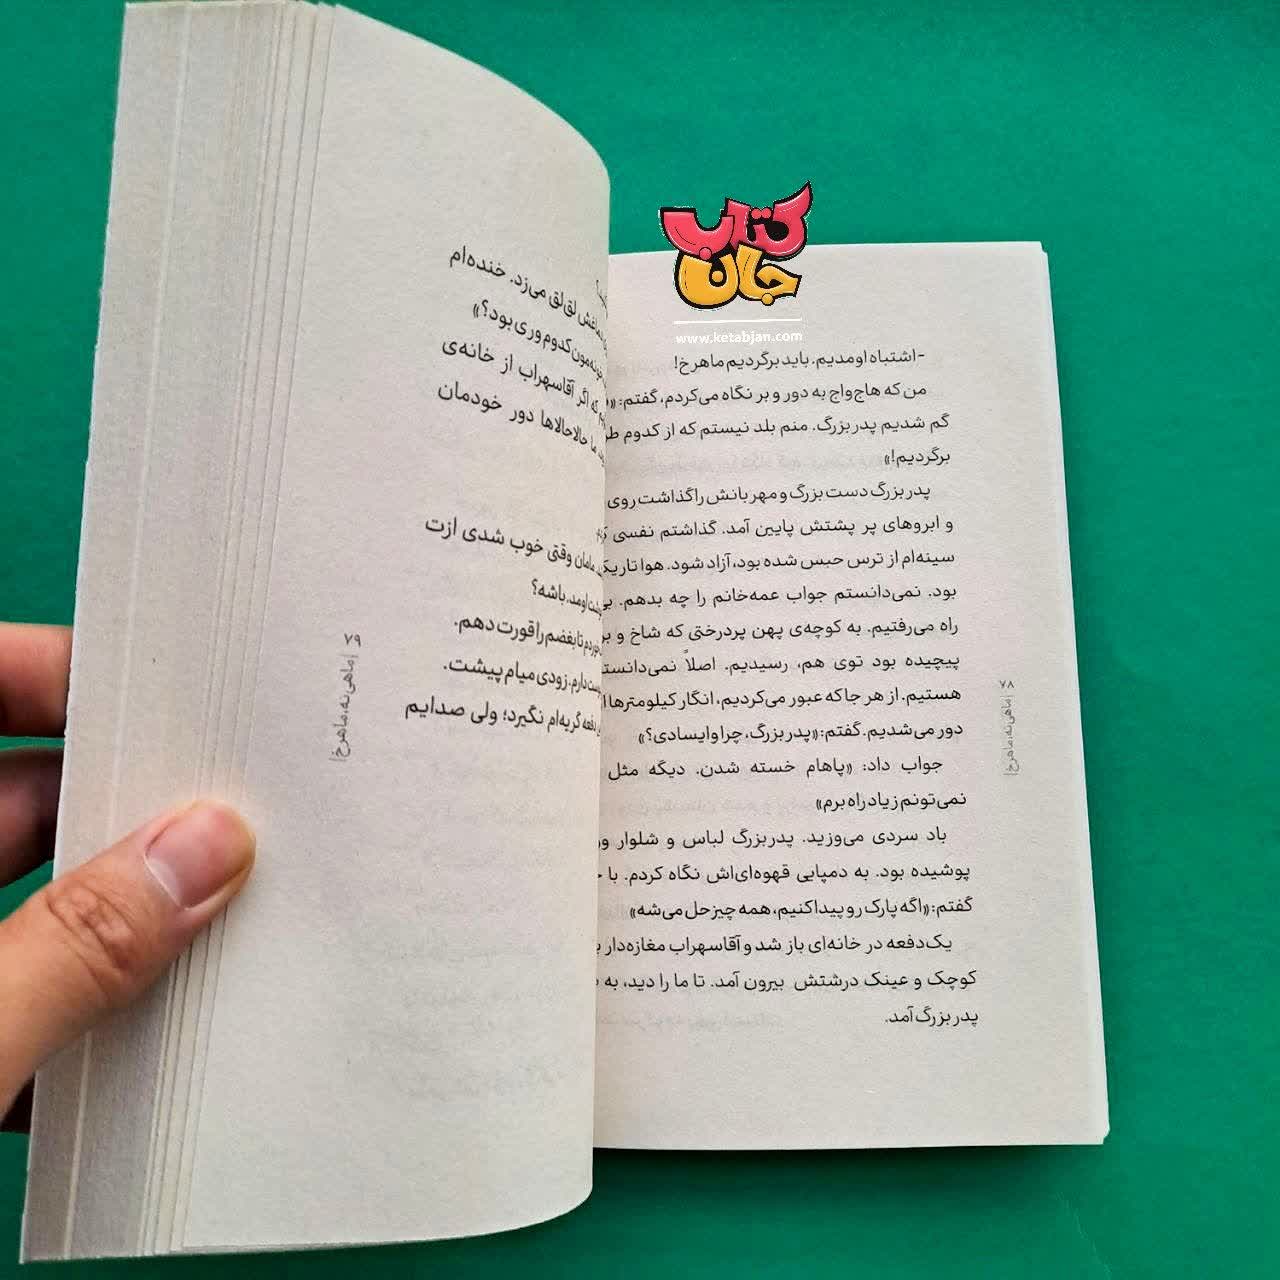 کتاب
جان
www.ketabjan.com
-اشتباه اومدیم. باید برگردیم ماهرخ!
من که هاج‌واج به دور و بر نگاه می‌کردم، گفتم: «
گم شدیم پدربزرگ. منم بلد نیستم که از کدوم
برگردیم!»
پدربزرگ دست بزرگ و مهربانش را گذاشت روی
و ابروهای پر پشتش پایین آمد. گذاشتم نفسی
سینه‌ام از ترس حبس شده بود، آزاد شود. هوا
بود. نمی‌دانستم جواب عمه‌خانم را چه بدهم.
راه می‌رفتیم. به کوچه‌ی پهن پردرختی که شاخ و
پیچیده بود توی هم، رسیدیم. اصلاً
هستیم. از هر جا که عبور می‌کردیم، انگار کیلومترها
دور می‌شدیم. گفتم: «پدربزرگ، چرا وایسادی؟»
جواب داد: «پاهام خسته شدن. دیگه مثل
نمی‌تونم زیاد راه برم»
باد سردی می‌وزید. پدربزرگ لباس و شلوار
پوشیده بود. به دمپایی قهوه‌ای‌اش نگاه کردم. با
گفتم: «اگه پارک رو پیدا کنیم، همه چیز حل می‌شه»
یک‌دفعه در خانه‌ای باز شد و آقاسهراب مغازه‌دار
کوچک و عینک درشتش بیرون آمد. تا ما را دید، به
پدربزرگ آمد.
۷۸ | ماهی نه، ماهرخ!
لق‌لق می‌زد. خنده‌ام
کدوم وری بود؟»
که اگر آقاسهراب از خانه‌ی
ما حالاحالاها دور خودمان
مامان وقتی خوب شدی ازت
اومد. باشه؟
تا بغضم را قورت دهم.
دارم. زودی میام پیشت.
دفعه گریه‌ام نگیرد؛ ولی صدایم
۷۹ | ماهی نه، ماهرخ!